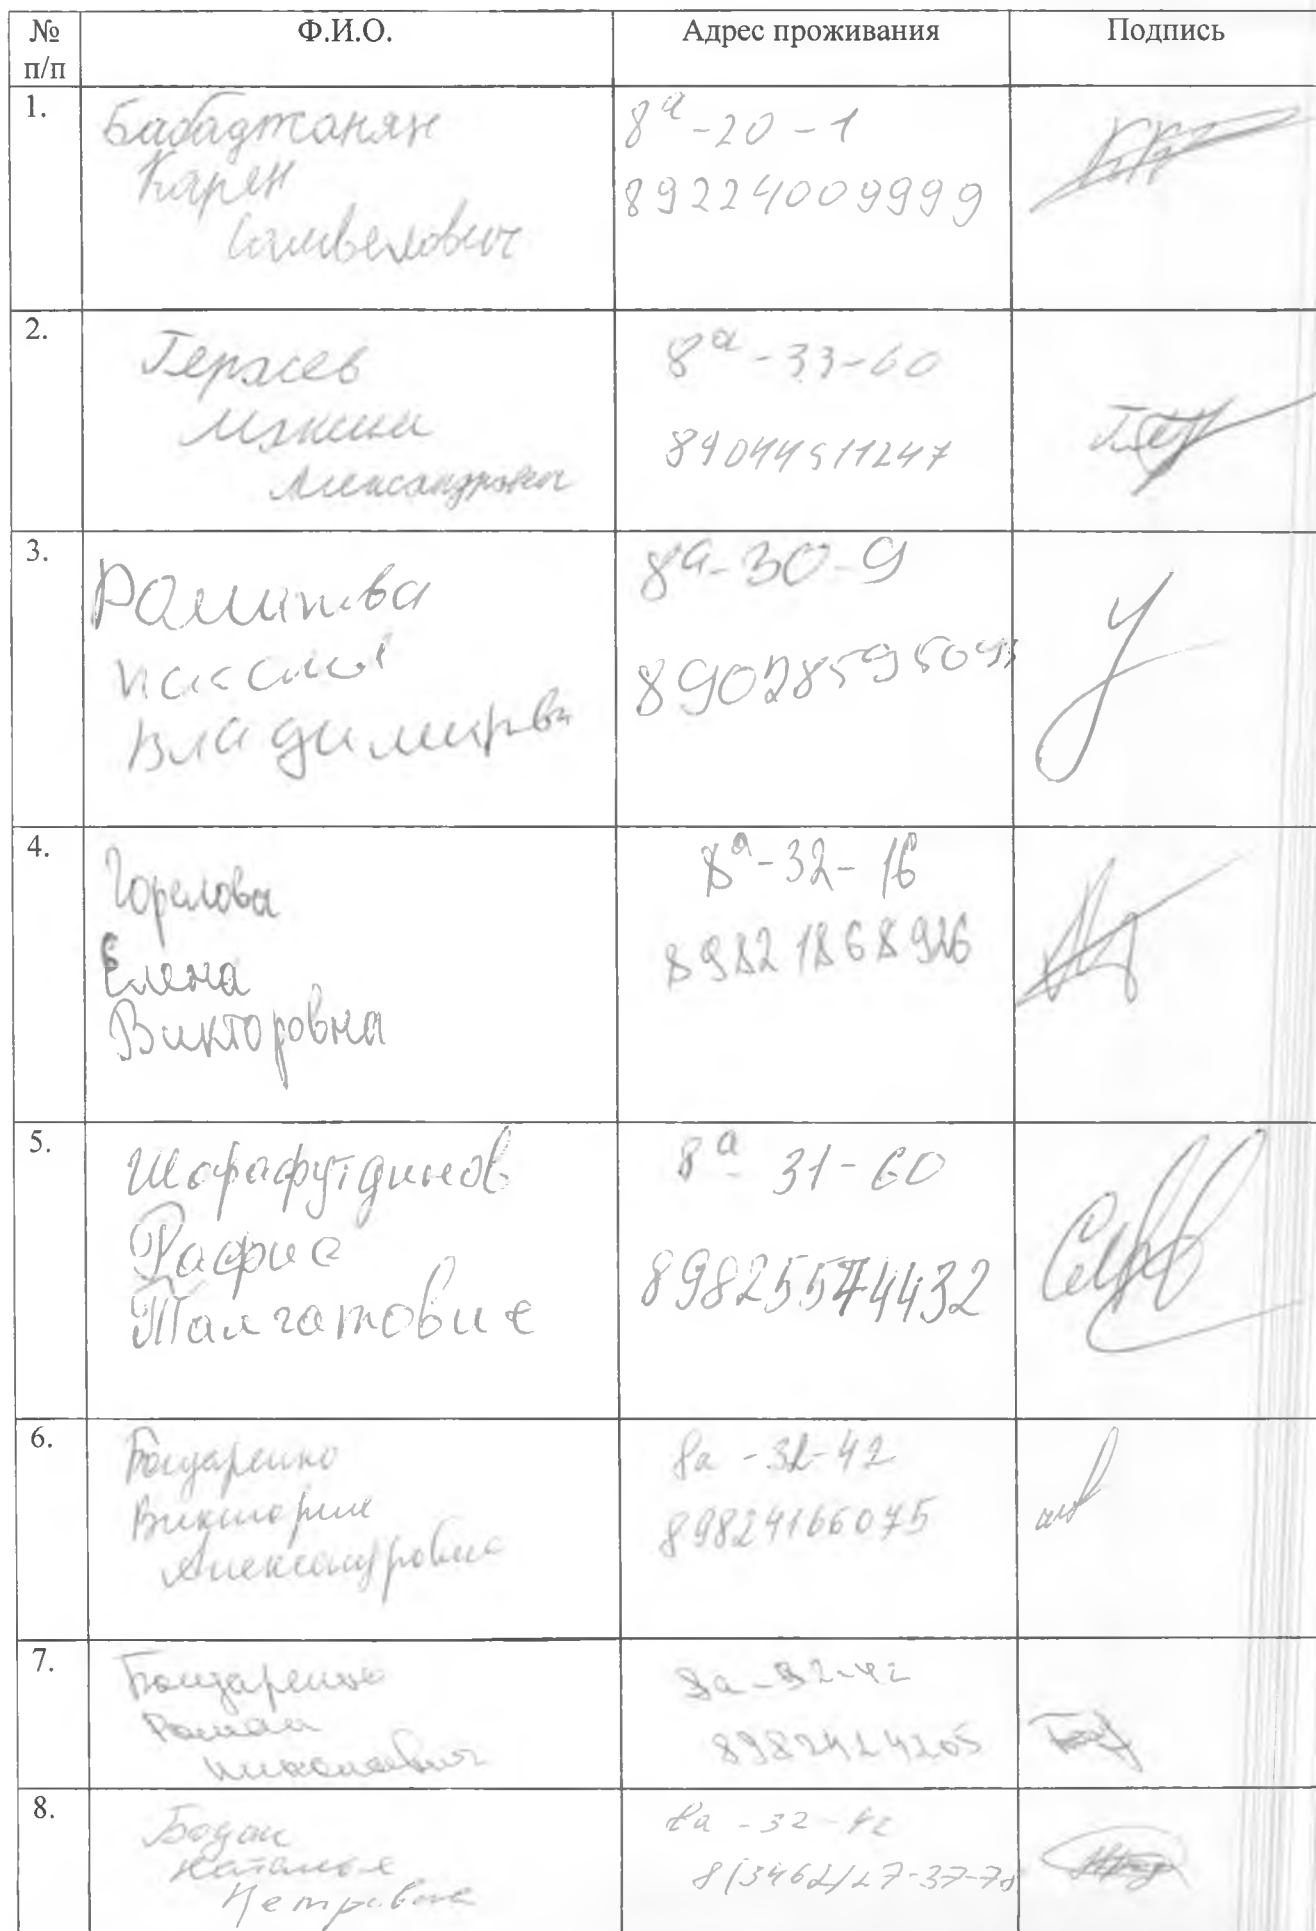 № п/п Ф.И.О. Адрес проживания Подпись
1.
Бабаджанян
Карен
Самвелович
8а-20-1
89224009999
2.
Максим
Александрович
8а-33-60
89044511247
3.
8а-30-9
4.
Горелова
Елена
Викторовна
8а-32-16
89821868926
5.
Шарафутдинов
Рафис
Талгатович
8а 31-60
89825574432
6.
Бондаренко
Виктория
Александровна
8а-32-42
89824166075
7.
Бондаренко
Роман
Николаевич
8а-32-42
89824124205
8.
Наталья
Петровна
8а-32-42
8(3462)27-37-78